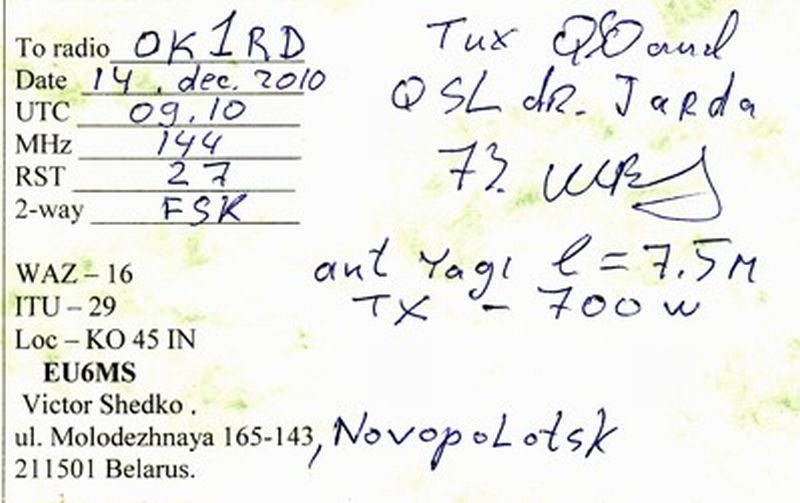 To radio OK1RD
Date 14. dec. 2010
UTC 09.10
MHz 144
RST 27
2-way FSK
Tnx QSO and
QSL dr. Jarda
73.
ant Yagi l = 7.5 M
TX - 700 w
WAZ – 16
ITU – 29
Loc – KO 45 IN
EU6MS
Victor Shedko .
ul. Molodezhnaya 165-143, Novopolotsk
211501 Belarus.